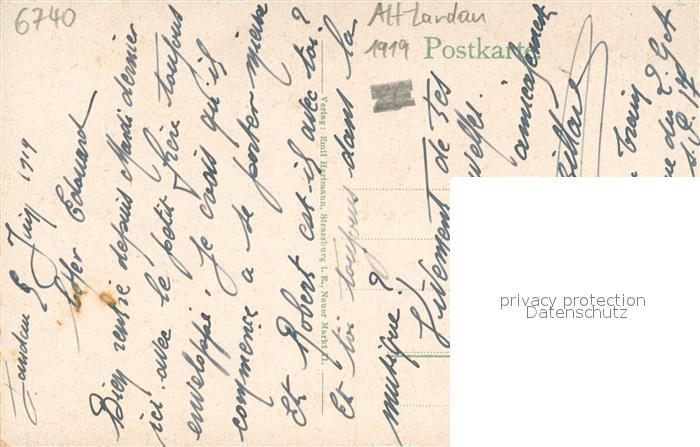 6740
Alt Landau
1919
Postkarte
Landau 9 Juin 1919
Cher Edouard
Bien rentré depuis Mardi dernier
ici avec le petit frère toujours
enveloppé. Je crois qu'il
commence à se porter mieux
Et Robert est-il avec toi?
Et toi toujours dans la
musique?
Vivement de tes
amicalement
Verlag: Emil Hartmann, Strassburg i. E., Neuer Markt 11.
privacy protection
Datenschutz